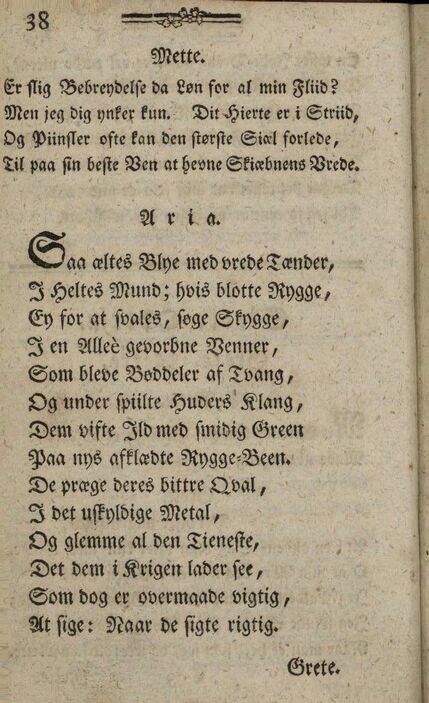 38
Mette.
Er slig Bebreydelse da Løn for al min Fliid?
Men jeg dig ynker kun. Dit Hierte er i Striid,
Og Piinsler ofte kan den største Siæl forlede,
Til paa sin beste Ven at hevne Skiæbnens Vrede.
Aria.
Saa æltes Blye med vrede Tænder,
I Heltes Mund; hvis blotte Rygge,
Ey for at svales, søge Skygge,
I en Alleè gevorbne Venner,
Som bleve Bøddeler af Tvang,
Og under spiilte Huders Klang,
Dem vifte Ild med smidig Green
Paa nys afklædte Rygge-Been.
De præge deres bittre Qval,
I det uskyldige Metal,
Og glemme al den Tieneste,
Det dem i Krigen lader see,
Som dog er overmaade vigtig,
At sige: Naar de sigte rigtig.
Grete.